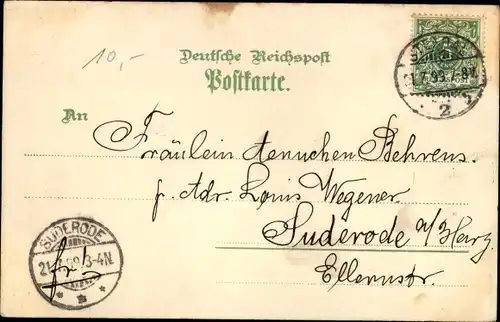 10,-
Deutsche Reichspost
Postkarte.
An
Fräulein Aennchen Behrens
p. Adr. Louis Wegener
Suderode a/Harz
Ellernstr.
SUDERODE
3-4N.
2